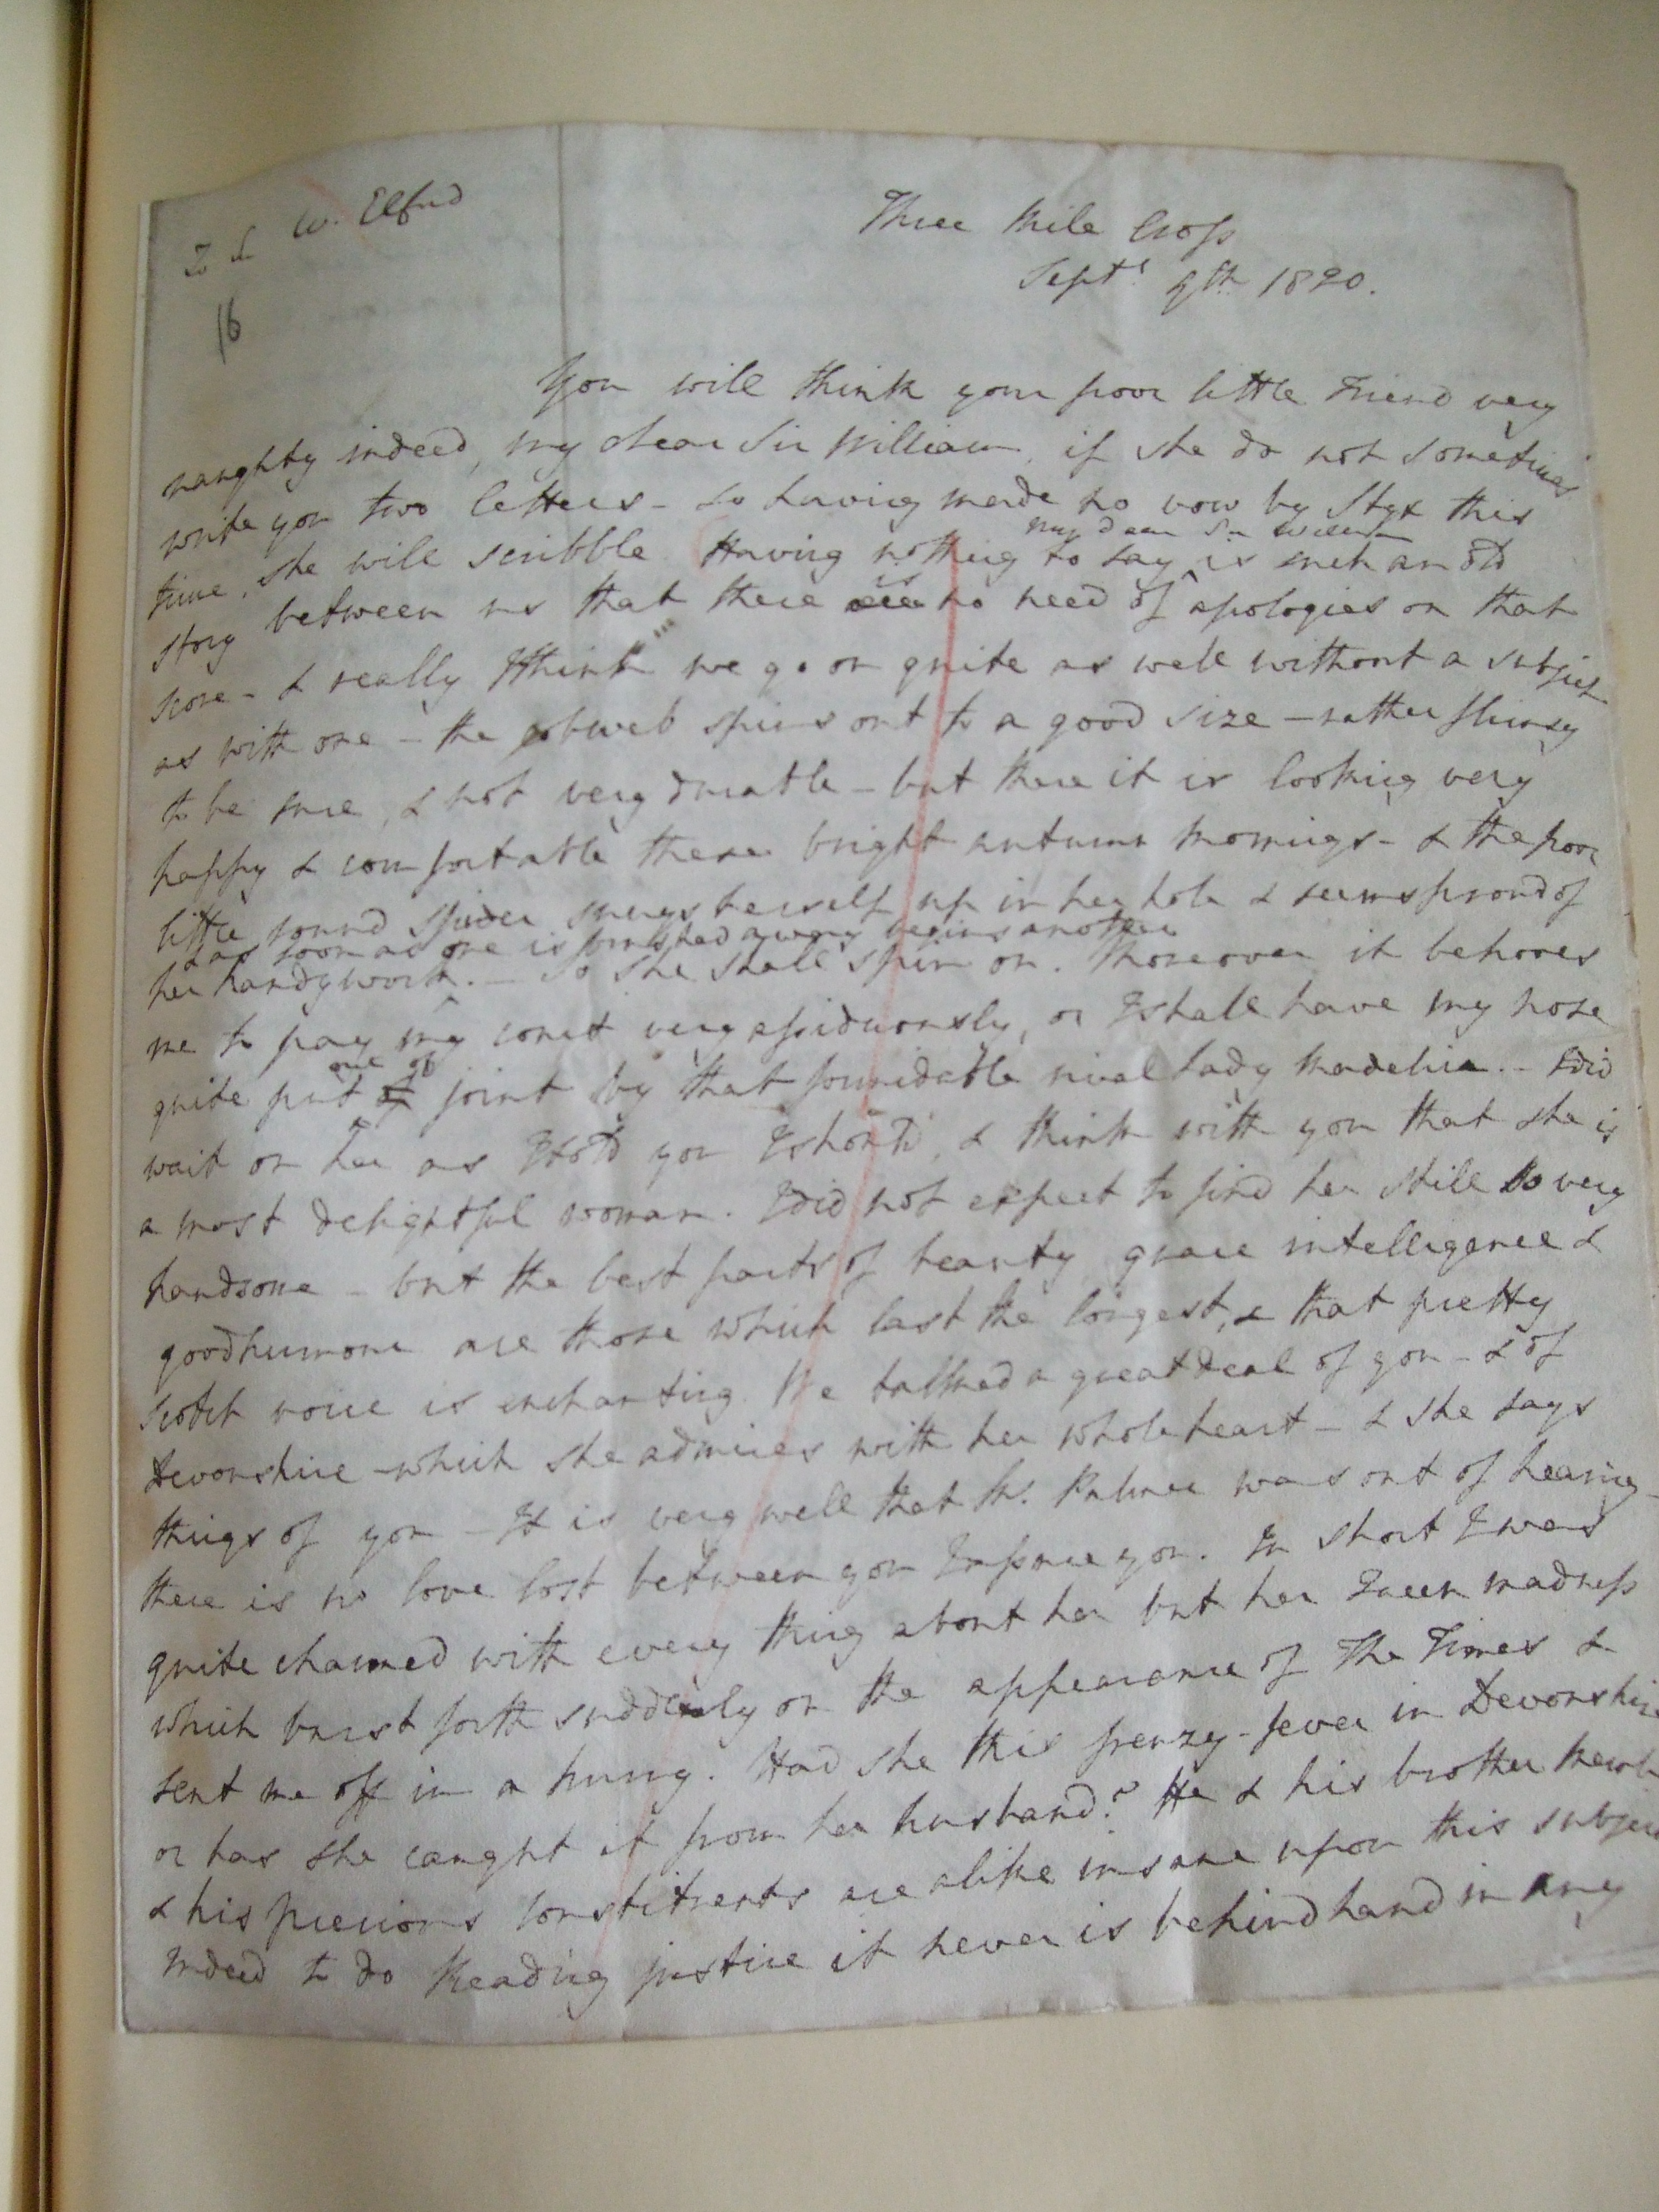 To Sir W. Elford
Three Mile Cross
Septr 9th 1820.
16
You will think your poor little Friend very
naughty indeed, my dear Sir William, if she do not sometimes
write you two letters - so having made no vow by Styx this
my dear Sir William
time, she will scribble. Having nothing to say is such an old
is
story between us that there no need of apologies on that
score - & really I think we go on quite as well without a subject
as with one - the cobweb spins out to a good size - rather flimsy
to be sure, & not very durable - but there it is looking very
happy & comfortable these bright autumn mornings - & the poor
little round spider snugs herself up in her hole & seems proud of
& as soon as one is brushed away begins another
her handywork. - So she shall spin on. Moreover it behoves
me to pay my court very assiduously, or I shall have my nose
out of
quite put joint by that formidable rival Lady Madelina. - I did
wait on her as I told you I should, & think with you that she is
a most delightful woman. I did not expect to find her still so very
handsome - but the best parts of beauty grace intelligence &
goodhumour are those which last the longest, & that pretty
Scotch voice is enchanting. We talked a great deal of you - & of
Devonshire - which she admires with her whole heart - & she says
things of you - It is very well that Mr. Palmer was out of hearing -
there is no love lost between you I assure you. In short I was
quite charmed with every thing about her but her Queen madness
which burst forth suddenly on the appearance of The Times &
sent me off in a hurry. Had she this frenzy-fever in Devonshire
or has she caught it from her husband? He & his brother
& his precious Constituents are alike insane upon this subject
Indeed to do Reading justice it never is behind hand in any